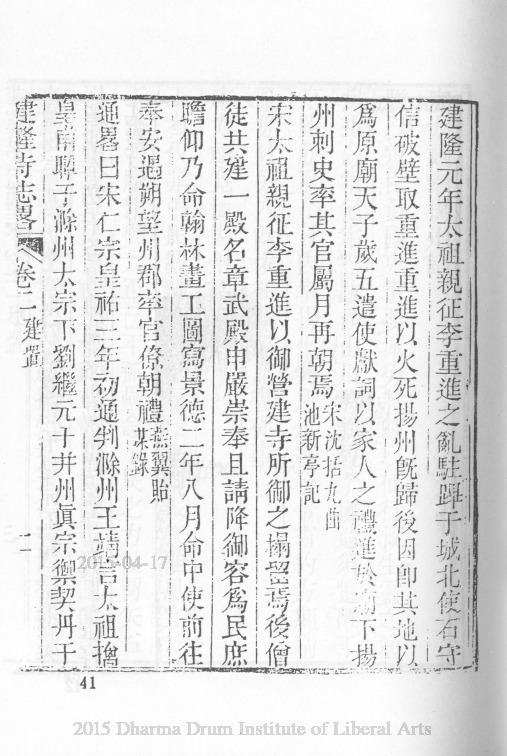 建隆元年太祖親征李重進之亂駐蹕于城北使石守
信破壁取重進重進以火死揚州旣歸後因卽其地以
爲原廟天子歲五遣使獻詞以家人之禮進於廟下揚
州刺史率其官屬月再朝焉宋沈括九曲池新亭記
宋太祖親征李重進以御營建寺所御之榻留焉後僧
徒共建一殿名章武殿申嚴崇奉且請降御容爲民庶
瞻仰乃命翰林畫工圖寫景德二年八月命中使前往
奉安遇朔望州郡率官僚朝禮燕翼貽謀錄
通畧曰宋仁宗皇祐三年初通判滁州王靖言太祖擒
皇甫暉于滁州太宗下劉繼元于并州眞宗禦契丹于
建隆寺志畧 卷二 建置 一
41
2015-04-17
2015 Dharma Drum Institute of Liberal Arts